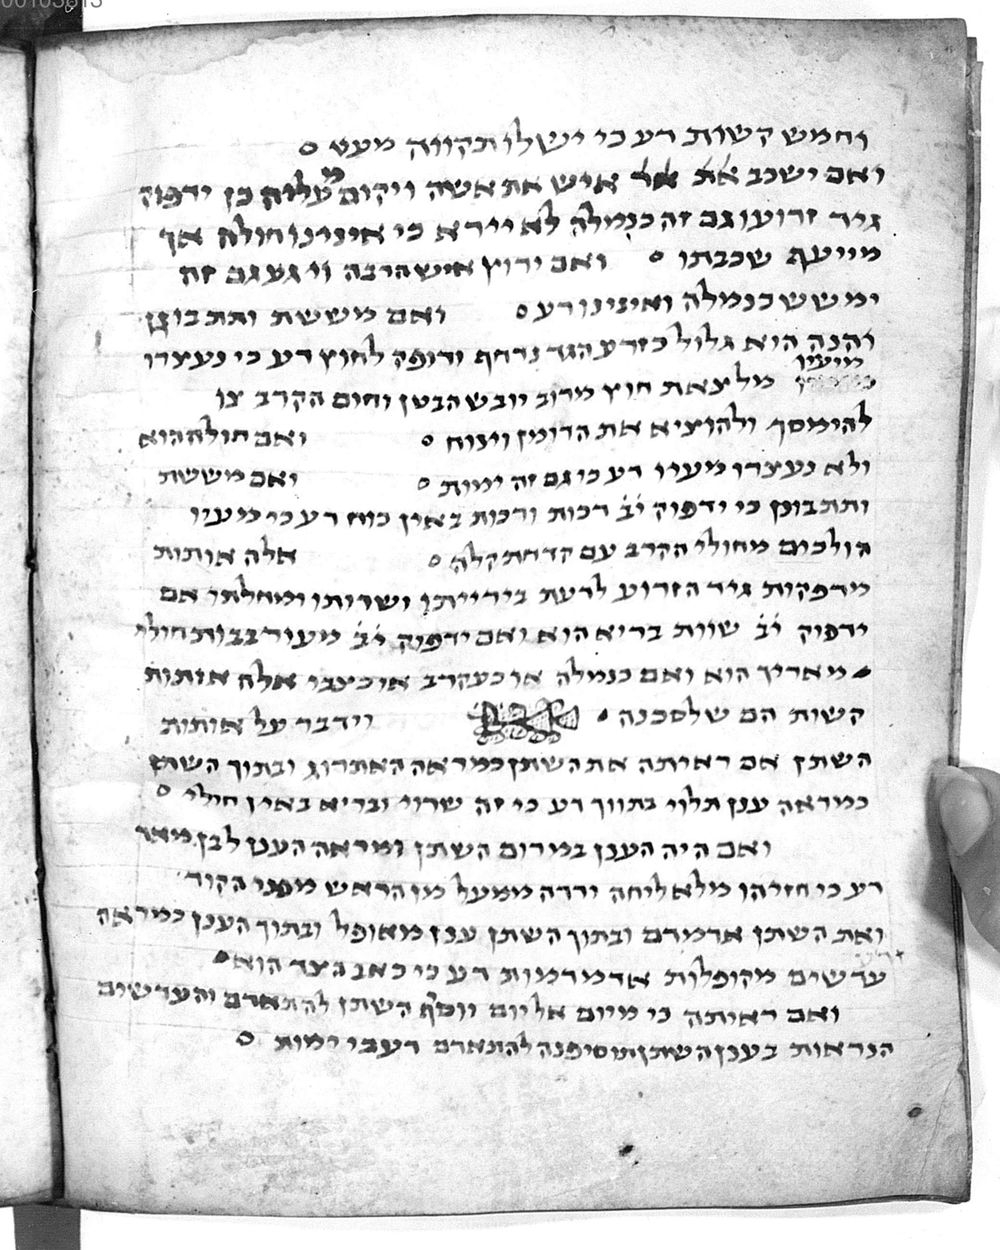 וחמש קשות רע כי יש לו תקווה מעט
ואם ישכב את איש את אשה ויקום מעליה כן ידפוק
גיד זרועו גם זה כנמלה לא יירא כי איננו חולה אך
מייעף שכבתו ואם ירוץ איש הרבה וייגע גם זה
ימשש כנמלה ואיננו רע ואם מששת ותתבונן
והנה היא גלול כזרע הגד נרחף ודופק לחוץ דע כי נעצרו
מיעיו
מלצאת חוץ מרוב יובש הבטן וחום הקרב צו
להימסך ולהוציא את הדומן וינוח ואם חולה הוא
ולא נעצרו מעיו דע כי גם זה ימות ואם מששת
ותתבונן כי ידפוק יב דכות ודכות באין כוח דע כי מעיו
הולכים מחולי הקרב עם קדחת קלה אלה אותות
מדפקות גיד הזרוע לדעת בירייתו ושרותו ומחלתו אם
ידפוק יב שוות בריא הוא ואם ידפוק יב מעוד בבות חולי
מאריך הוא ואם כנמלה או כעקרב או כיצבי אלה אותות
קשות הם שלסכנה וידבר על אותות
השתן אם ראיתה את השתן כמראה האתרוג ובתוך השתן
כמראה ענן תלוי בתווך דע כי זה שרוי ובריא באין חולי
ואם היה הענן במרום השתן ומראה הענן לבן מאד
דע כי חזיהו מלא ליחה ירדה ממעל מן הראש מפני הקור
ואת השתן אדמדם ובתוך השתן ענן מאופל ובתוך הענן כמראה
עדשים מקופלות אדמדמות דע כי כאב בצד הוא
ואם ראיתה כי מיום אל יום יוסף השתן להתאדם והעדשים
הנראות בענן השתן תוסיפנה להתאדם דע כי ימות